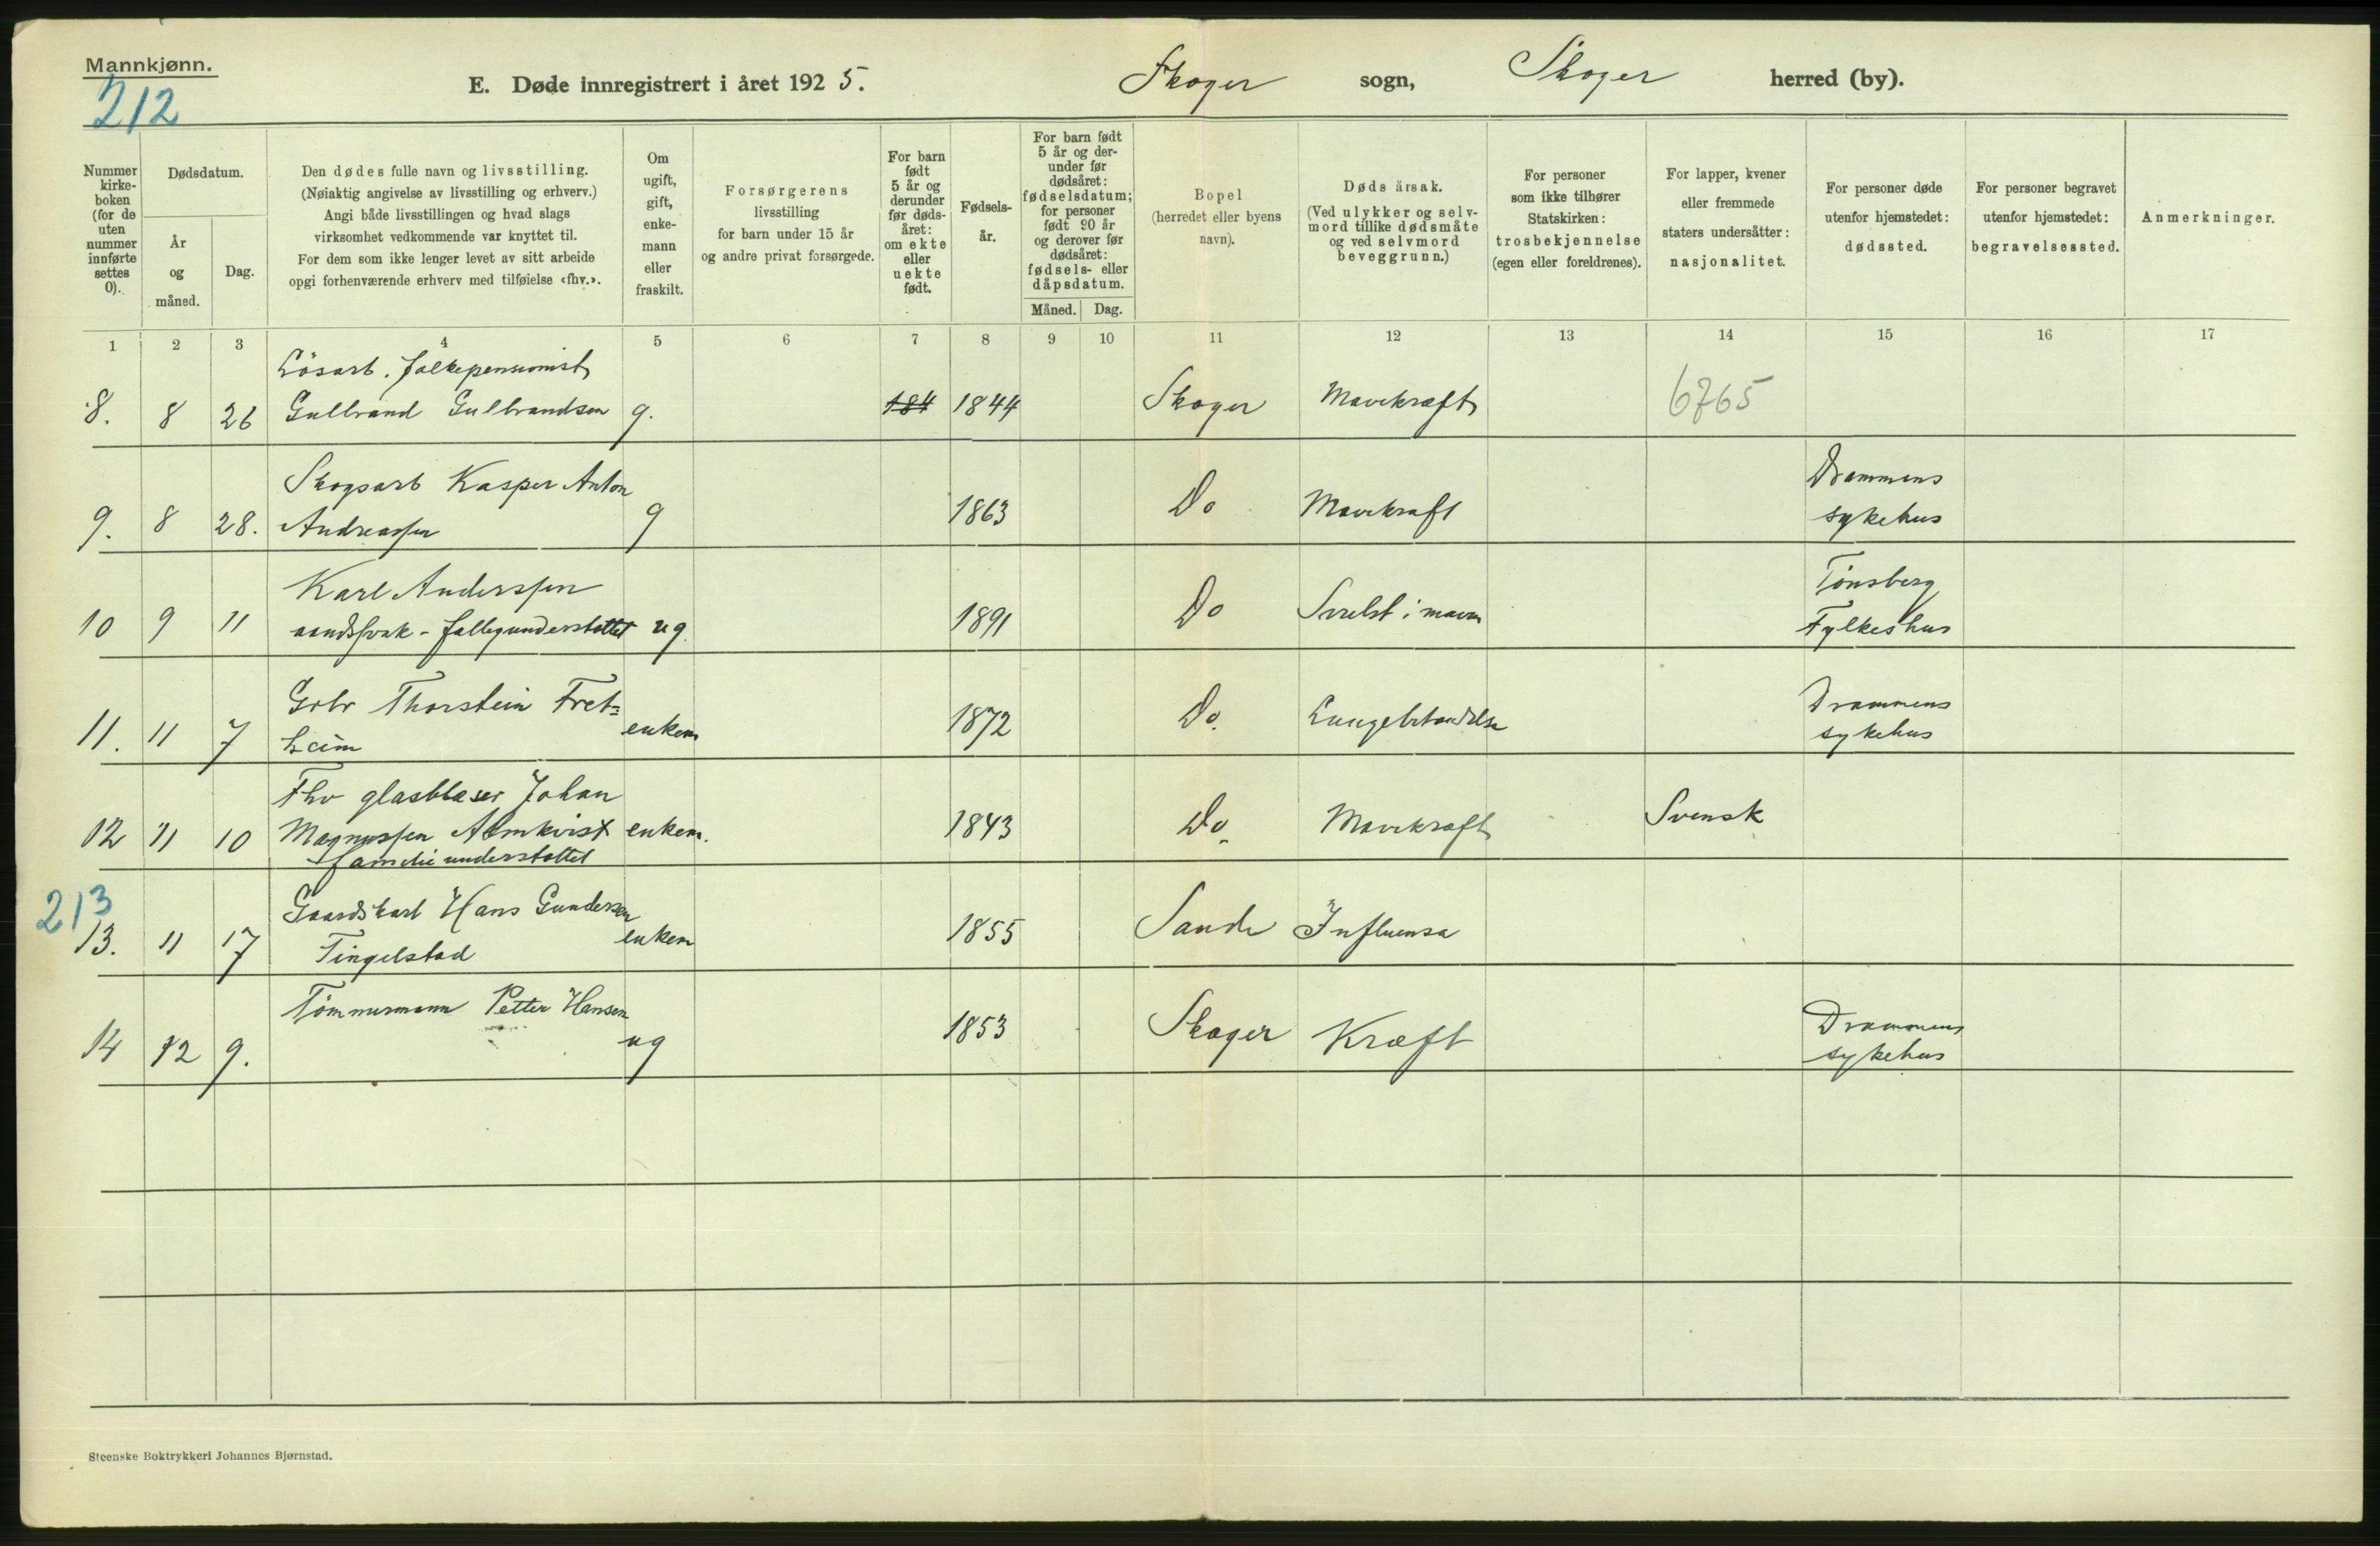 Mannkjønn.
212
E. Døde innregistrert i året 1925. Skoger sogn, Skoger herred (by).
Nummer kirke- boken (for de uten nummer innførte settes 0).
Dødsdatum.
År og måned.
Dag.
Den dødes fulle navn og livsstilling.
(Nøiaktig angivelse av livsstilling og erhverv.)
Angi både livsstillingen og hvad slags
virksomhet vedkommende var knyttet til.
For dem som ikke lenger levet av sitt arbeide
opgi forhenværende erhverv med tilføielse «fhv.».
Om ugift, gift, enke- mann eller fraskilt.
Forsørgerens
livsstilling
for barn under 15 år
og andre privat forsørgede.
For barn født 5 år og derunder før døds- året: om ekte eller uekte født.
Fødsels- år.
For barn født 5 år og der- under før dødsåret: fødselsdatum; for personer født 90 år og derover før dødsåret: fødsels- eller dåpsdatum.
Måned. Dag.
Bopel
(herredet eller byens
navn).
Dødsårsak.
(Ved ulykker og selv-
mord tillike dødsmåte
og ved selvmord
beveggrunn.)
For personer
som ikke tilhører
Statskirken:
trosbekjennelse
(egen eller foreldrenes).
For lapper, kvener
eller fremmede
staters undersåtter:
nasjonalitet.
For personer døde
utenfor hjemstedet:
dødssted.
For personer begravet
utenfor hjemstedet:
begravelsessted.
Anmerkninger.
1 2 3 4 5 6 7 8 9 10 11 12 13 14 15 16 17
Lösarb. folkepensionist
8. 8 26 Gulbrand Gulbrandsen g. 184 1844 Skoger Mavekræft 6765
Skogsarb Kasper Anton Drammens
9. 8 28. Andreassen g 1863 Do Mavekræft sykehus
Karl Anderssen Tønsberg
10 9 11 aandssvak - fattigunderstøttet ug. 1891 Do Svulst i maven Fylkeshus
Grbr Thorstein Fret= Drammens
11. 11 7 heim enkem 1872 Do. Lungebetændelse sykehus
Fhv glasblæser Johan
12 11 10 Magnussen Almkvist enkem. 1843 Do. Mavekræft Svensk
familieunderstøttet
213
Gaardskarl Hans Gundersen
13. 11 17 Tingelstad enkem 1855 Sande Influensa
Tømmermann Petter Hansen Drammens
14 12 9. ug 1853 Skoger Kræft sykehus
Steenske Boktrykkeri Johannes Bjørnstad.